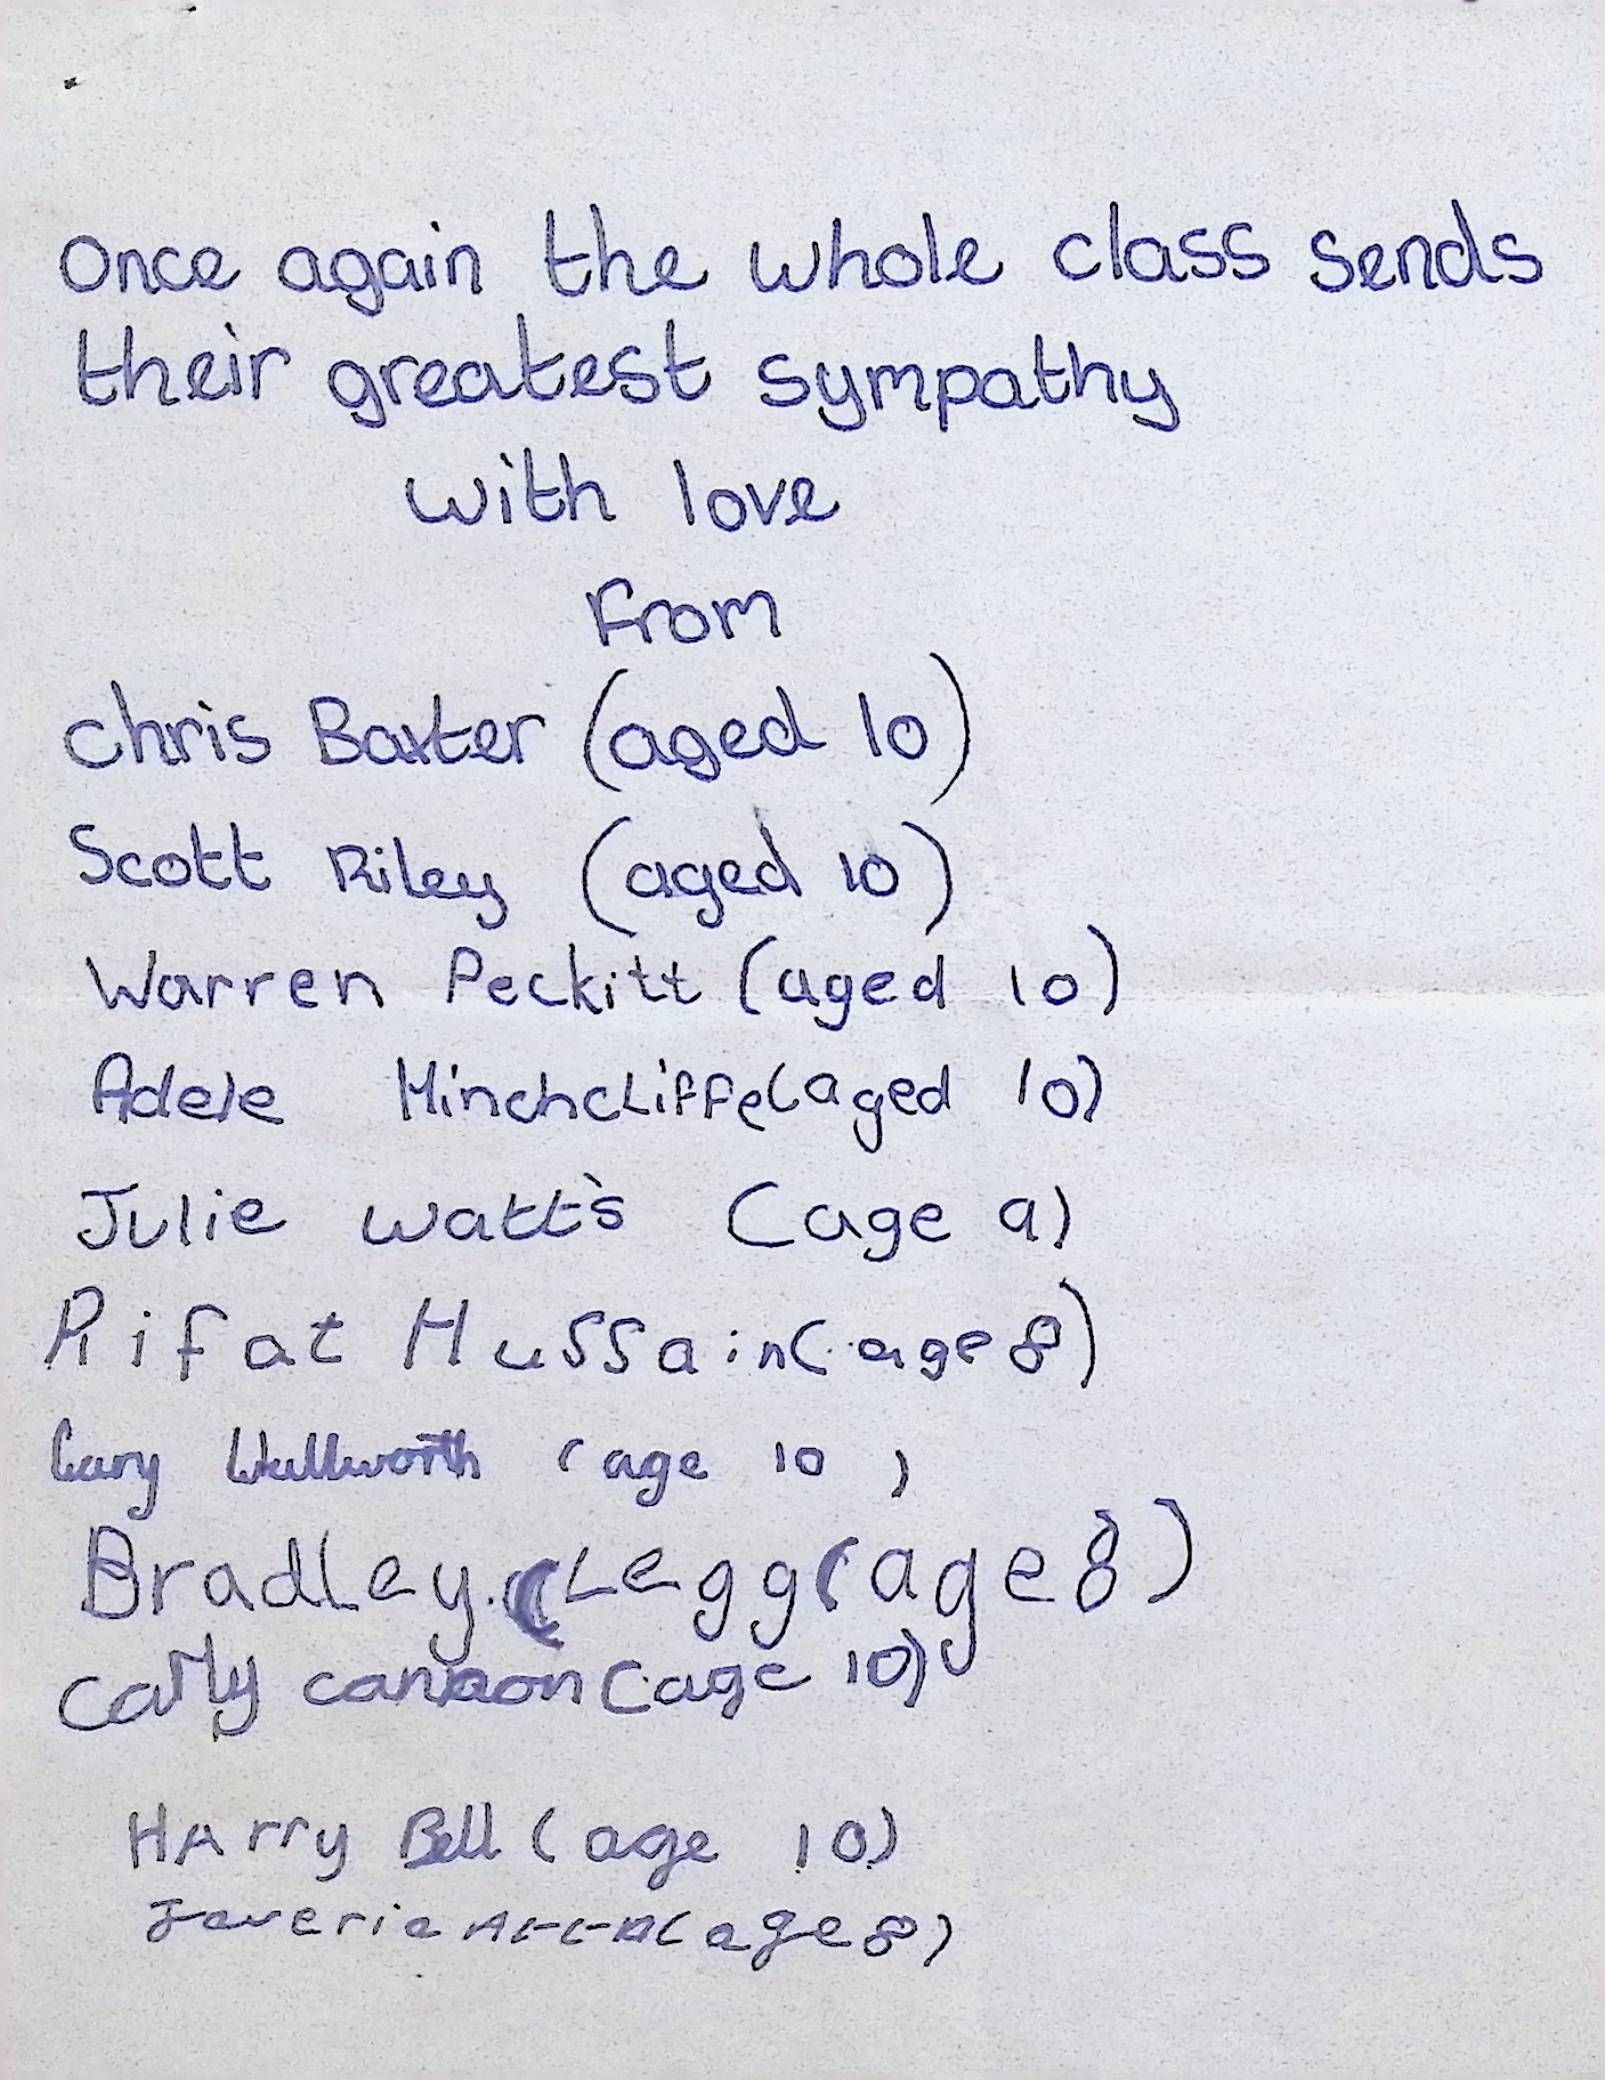 Once again the whole class sends
their greatest sympathy
with love
From
Chris Baxter (aged 10)
Scott Riley (aged 10)
Warren Peckitt (aged 10)
Adele Hinchcliffe (aged 10)
Julie Watt's (age 9)
Rifat Hussain (age 8)
Gary Wallworth (age 10)
Bradley Legg (age 8)
Carly cannon (age 10)
HArry Bell (age 10)
Javeria (age 8)